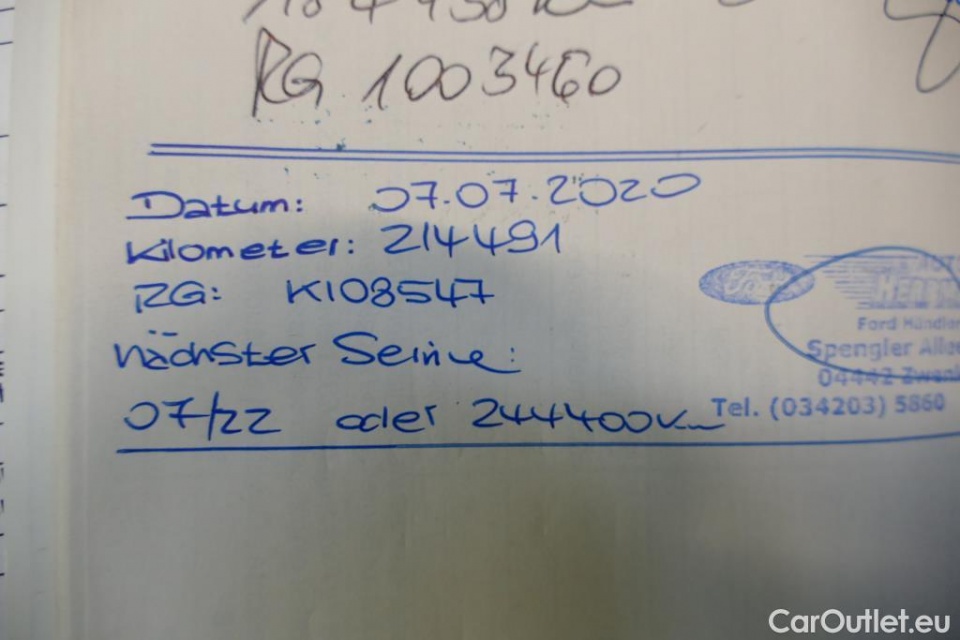 RG 1003460
Datum: 07.07.2020
Kilometer: 214491
RG: K108547
nächster Service:
07/22 oder 244400km
Ford
Ford Händler
Spengler Allee
04442
Tel. (034203) 5860
CarOutlet.eu